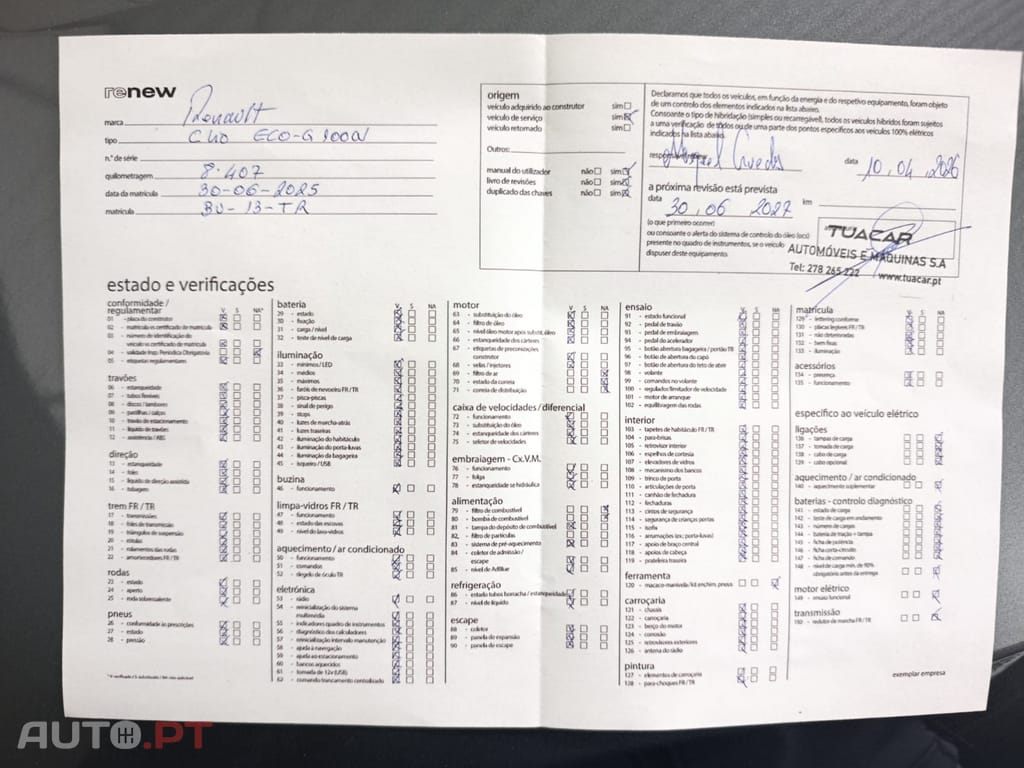 renew
marca Renault
tipo CLIO ECO-G 100CV
n.º de série
quilometragem 8.407
data da matrícula 30-06-2025
matrícula BU-13-TR
origem
veículo adquirido ao construtor sim
veículo de serviço sim
veículo retomado sim
Outros:
manual do utilizador não sim
livro de revisões não sim
duplicado das chaves não sim
Declaramos que todos os veículos, em função da energia e do respetivo equipamento, foram objeto
de um controlo dos elementos indicados na lista abaixo.
Consoante o tipo de hibridação (simples ou recarregável), todos os veículos híbridos foram sujeitos
a uma verificação de todos ou de uma parte dos pontos específicos aos veículos 100% elétricos
indicados na lista abaixo.
data 10.04.2026
a próxima revisão está prevista
data 30.06 2027 km
(o que primeiro ocorrer)
ou consoante o alerta do sistema de controlo do óleo (ocs)
presente no quadro de instrumentos, se o veículo
dispuser deste equipamento.
TUACAR
AUTOMÓVEIS E MÁQUINAS S.A
Tel: 278 265 222 www.tuacar.pt
estado e verificações
conformidade /
regulamentar V S NA*
01 - placa do construtor
02 - matrícula vs certificado de matrícula
03 - número de identificação do
veículo vs certificado de matrícula
04 - validade Insp. Periódica Obrigatória
05 - etiquetas regulamentares
travões
06 - estanqueidade
07 - tubos flexíveis
08 - discos / tambores
09 - pastilhas / calços
10 - travão de estacionamento
11 - líquido de travões
12 - assistência / ABS
direção
13 - estanqueidade
14 - foles
15 - líquido de direção assistida
16 - tubagem
trem FR / TR
17 - transmissões
18 - foles de transmissão
19 - triângulos de suspensão
20 - rótulas
21 - rolamentos das rodas
22 - amortecedores FR / TR
rodas
23 - estado
24 - aperto
25 - roda sobresselente
pneus
26 - conformidade às prescrições
27 - estado
28 - pressão
bateria V S NA
29 - estado
30 - fixação
31 - carga / nível
32 - teste de nível de carga
iluminação
33 - mínimos / LED
34 - médios
35 - máximos
36 - faróis de nevoeiro FR / TR
37 - pisca-piscas
38 - sinal de perigo
39 - stops
40 - luzes de marcha-atrás
41 - luzes traseiras
42 - iluminação do habitáculo
43 - iluminação do porta-luvas
44 - iluminação da bagageira
45 - isqueiro / USB
buzina
46 - funcionamento
limpa-vidros FR / TR
47 - funcionamento
48 - estado das escovas
49 - nível do lava-vidros
aquecimento / ar condicionado
50 - funcionamento
51 - comandos
52 - desgelo de óculo TR
eletrónica
53 - rádio
54 - reinicialização do sistema
multimédia
55 - indicadores quadro de instrumentos
56 - diagnóstico dos calculadores
57 - reinicialização intervalo manutenção
58 - ajuda à navegação
59 - ajuda ao estacionamento
60 - bancos aquecidos
61 - tomada de 12v (USB)
62 - comando trancamento centralizado
motor V S NA
63 - substituição do óleo
64 - filtro de óleo
65 - nível óleo motor após substit. óleo
66 - estanqueidade dos cárteres
67 - etiquetas de preconizações
construtor
68 - velas / injetores
69 - filtro de ar
70 - estado da correia
71 - correia de distribuição
caixa de velocidades / diferencial
72 - funcionamento
73 - substituição do óleo
74 - estanqueidade dos cárteres
75 - seletor de velocidades
embraiagem - Cx.V.M.
76 - funcionamento
77 - folga
78 - estanqueidade se hidráulica
alimentação
79 - filtro de combustível
80 - bomba de combustível
81 - tampa do depósito de combustível
82 - filtro de partículas
83 - sistema de pré-aquecimento
84 - coletor de admissão /
escape
85 - nível de AdBlue
refrigeração
86 - estado tubos borracha / estanqueidade
87 - nível de líquido
escape
88 - coletor
89 - panela de expansão
90 - panela de escape
ensaio V S NA
91 - estado funcional
92 - pedal de travão
93 - pedal de embraiagem
94 - pedal do acelerador
95 - botão abertura bagageira / portão TR
96 - botão de abertura do capô
97 - botão de abertura do teto de abrir
98 - volante
99 - comandos no volante
100 - regulador/limitador de velocidade
101 - motor de arranque
102 - equilibragem das rodas
interior
103 - tapetes de habitáculo FR / TR
104 - para-brisas
105 - retrovisor interior
106 - espelhos de cortesia
107 - elevadores de vidros
108 - mecanismo dos bancos
109 - trinco de porta
110 - articulações de porta
111 - canhão de fechadura
112 - fechaduras
113 - cintos de segurança
114 - segurança de crianças portas
115 - isofix
116 - arrumações (ex: porta-luvas)
117 - apoio de braço central
118 - apoios de cabeça
119 - prateleira traseira
ferramenta
120 - macaco-manivela / kit enchim. pneus
carroçaria
121 - chassis
122 - carroçaria
123 - berço do motor
124 - corrosão
125 - retrovisores exteriores
126 - antena do rádio
pintura
127 - elementos de carroçaria
128 - para-choques FR / TR
matrícula V S NA
129 - lettering conforme
130 - placas legíveis FR / TR
131 - não deterioradas
132 - bem fixas
133 - iluminação
acessórios
134 - presença
135 - funcionamento
específico ao veículo elétrico
ligações
136 - tampas de carga
137 - tomada de carga
138 - cabo de carga
139 - cabo opcional
aquecimento / ar condicionado
140 - aquecimento suplementar
baterias - controlo diagnóstico
141 - estado de carga
142 - teste de carga em andamento
143 - número de cargas
144 - bateria de tração + tampa
145 - ficha de potência
146 - ficha corta-circuito
147 - ficha de comando
148 - nível de carga mín. de 90%
obrigatório antes da entrega
motor elétrico
149 - ensaio funcional
transmissão
150 - redutor de marcha FR / TR
* V: verificado / S: substituído / NA: não aplicável
exemplar empresa
AUTO.PT